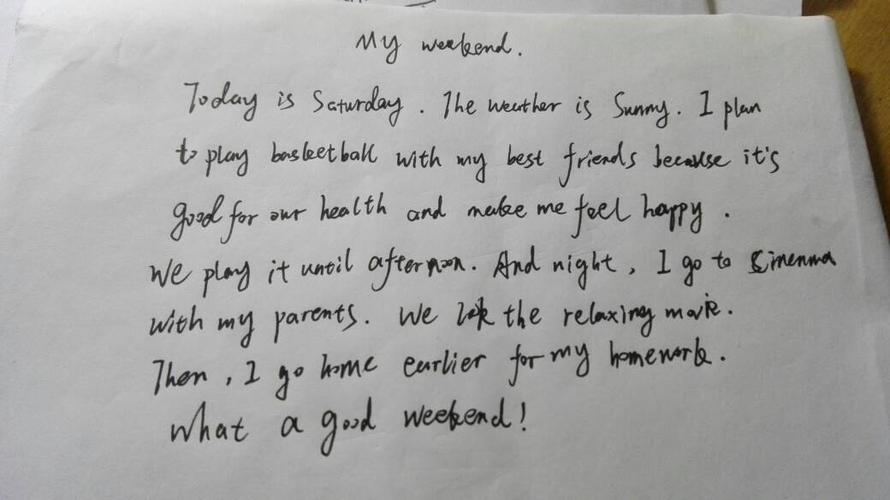 My weekend.
Today is Saturday. The weather is Sunny. I plan
to play basketball with my best friends because it's
good for our health and make me feel happy.
We play it until afternoon. And night, I go to Cinemma
with my parents. We look the relaxing movie.
Then, I go home earlier for my homework.
What a good weekend!